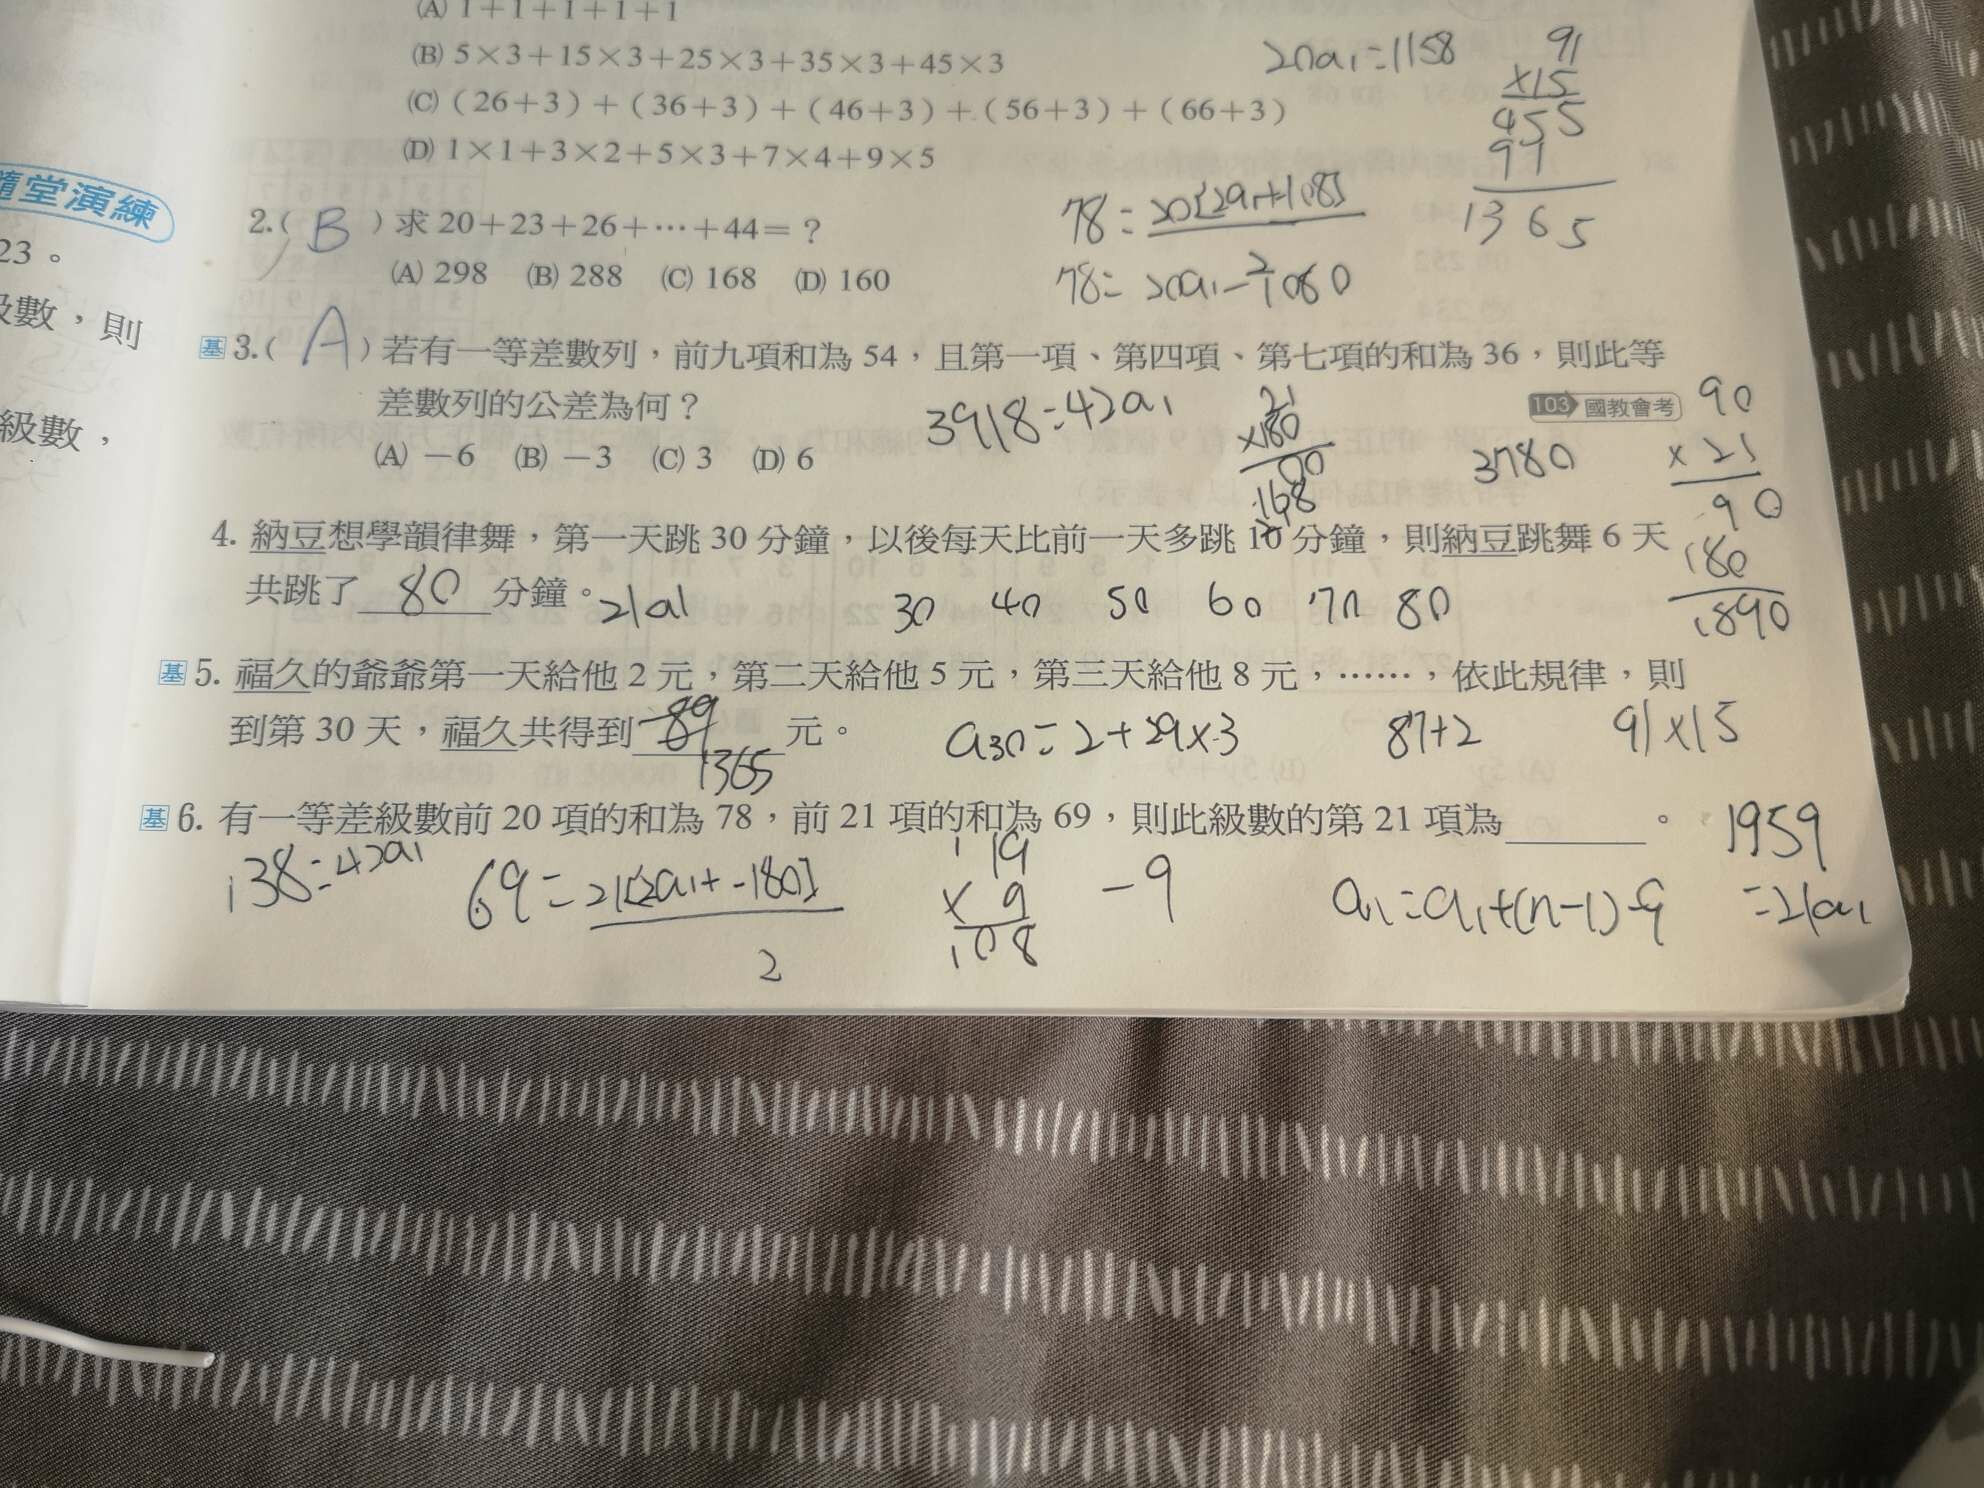 (A) 1＋1＋1＋1＋1
(B) 5×3＋15×3＋25×3＋35×3＋45×3
(C)（26＋3）＋（36＋3）＋（46＋3）＋（56＋3）＋（66＋3）
(D) 1×1＋3×2＋5×3＋7×4＋9×5
20a1=1158
91
×15
455
91
1365
隨堂演練
23。
級數，則
級數，
2.( B ) 求 20＋23＋26＋…＋44＝？
(A) 298 (B) 288 (C) 168 (D) 160
78=20[2a1+108]
2
78=20a1-1080
基 3.( A ) 若有一等差數列，前九項和為 54，且第一項、第四項、第七項的和為 36，則此等
差數列的公差為何？
103 國教會考
(A) －6 (B) －3 (C) 3 (D) 6
3918=42a1
21
×180
00
168
3780
90
×21
90
180
1890
4. 納豆想學韻律舞，第一天跳 30 分鐘，以後每天比前一天多跳 10 分鐘，則納豆跳舞 6 天
共跳了 80 分鐘。
21a1
30 40 50 60 70 80
基 5. 福久的爺爺第一天給他 2 元，第二天給他 5 元，第三天給他 8 元，……，依此規律，則
到第 30 天，福久共得到 89 元。
1365
a30=2+29×3
87+2
91×15
基 6. 有一等差級數前 20 項的和為 78，前 21 項的和為 69，則此級數的第 21 項為 。
1959
=21a1
138=42a1
69=21[2a1+-180]
2
19
×9
108
-9
a1=a1+(n-1)-9